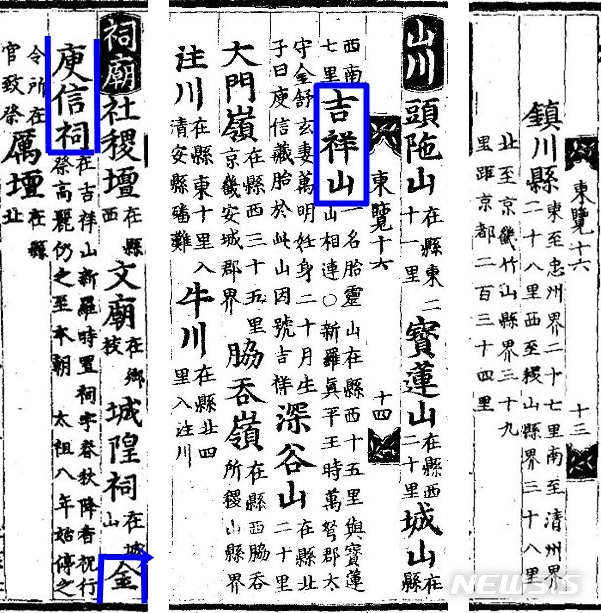 鎮川縣 東至忠州界二十七里南至清州界
二十八里西至稷山縣界三十八里
北至京畿竹山縣界三十九
里距京都二百三十四里
東覽十六 十三
山川 頭陁山 在縣東二十一里 寶蓮山 在縣西二十里 城山 在縣
東覽十六 十四
西南七里 吉祥山 一名胎靈山在縣西十五里與寶蓮山相連○新羅眞平王時萬弩郡太
守金舒玄妻萬明妊身二十月生子曰庾信藏胎於此山因號吉祥 深谷山 在縣北二十里
大門嶺 在縣西三十五里京畿安城郡界 脇呑嶺 在縣西脇呑所稷山縣界
注川 在縣東十里入清安縣磻難 牛川 在縣北四里入注川
祠廟 社稷壇 在縣西 文廟 在鄉校 城隍祠 在城山 金
庾信祠 在吉祥山新羅時置祠宇春秋降香祝行祭高麗仍之至本朝 太祖八年始停之
令所在官致祭 厲壇 在縣北
NEWSIS